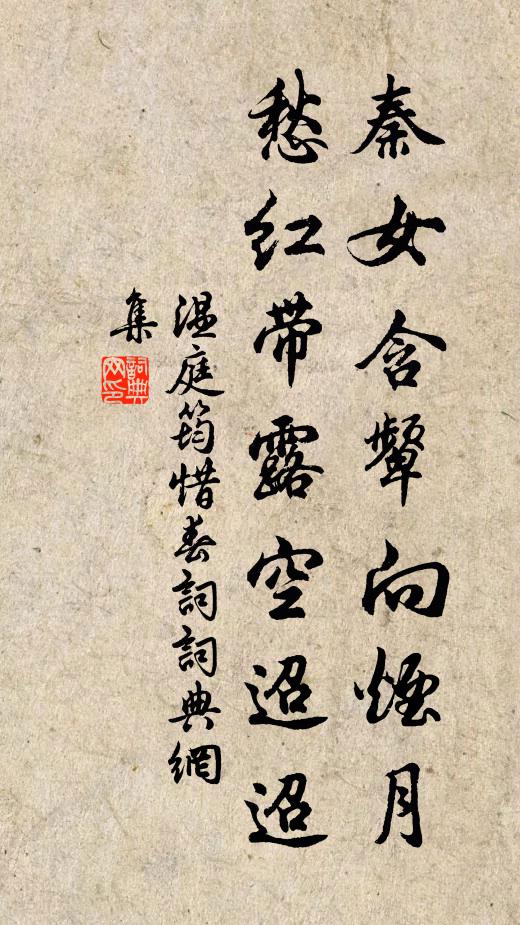 秦女含顰向煙月
愁紅带露空迢迢
温庭筠惜春詞詞典網
集
詞典网印